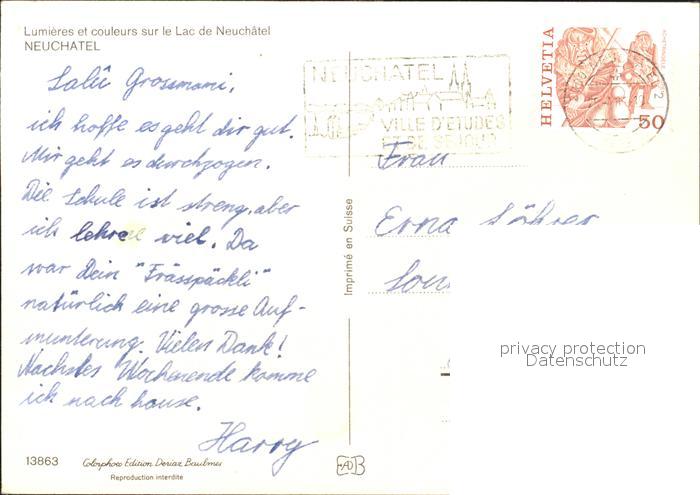 Lumières et couleurs sur le Lac de Neuchâtel
NEUCHATEL
Salü Grossmami,
ich hoffe es geht dir gut.
Mir geht es durchzogen.
Die Schule ist streng, aber
ich lehre viel. Da
war Dein "Frässpäckli"
natürlich eine grosse Auf-
munterung. Vielen Dank!
Nächstes Wochenende komme
ich nach hause.
Harry
13863
Colorphoto Edition Deriaz Baulmes
Reproduction interdite
Imprimé en Suisse
NEUCHATEL
VILLE D'ETUDES
ET DE SEJOUR
HELVETIA
50
Frau
Erna
privacy protection
Datenschutz